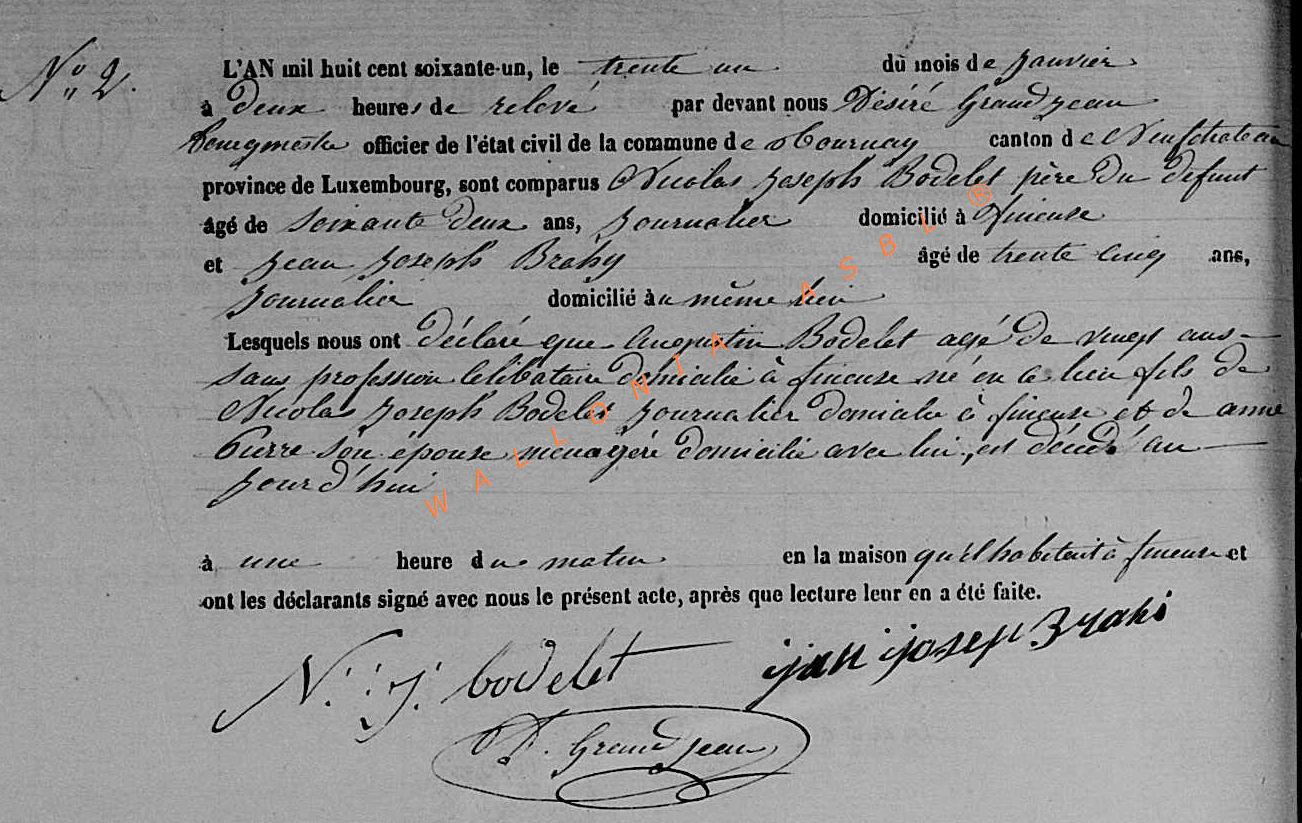 N° 2.
L'AN mil huit cent soixante-un, le trente un du mois de janvier
à deux heures de relevé par devant nous Désiré Grandjean
bourgmestre officier de l'état civil de la commune de Tournay canton de Neufchateau
province de Luxembourg, sont comparus Nicolas Joseph Bodelet père du defunt
âgé de soixante deux ans, journalier domicilié à fineuse
et Jean Joseph Brahy âgé de trente cinq ans,
journalier domicilié au même lieu
Lesquels nous ont déclaré que Augustin Bodelet agé de vingt ans
sans profession celibataire domicilié à fineuse né en ce lieu fils de
Nicolas Joseph Bodelet journalier domicilié à fineuse et de anne
Pierre son épouse menagère domicilié avec lui, est décédé au
jourd'hui
à une heure du matin en la maison qu'il habitait à fineuse et
ont les déclarants signé avec nous le présent acte, après que lecture leur en a été faite.
N. J. bodelet
jan josep Brahi
D. Grandjean
WALLONIA ASBL ®